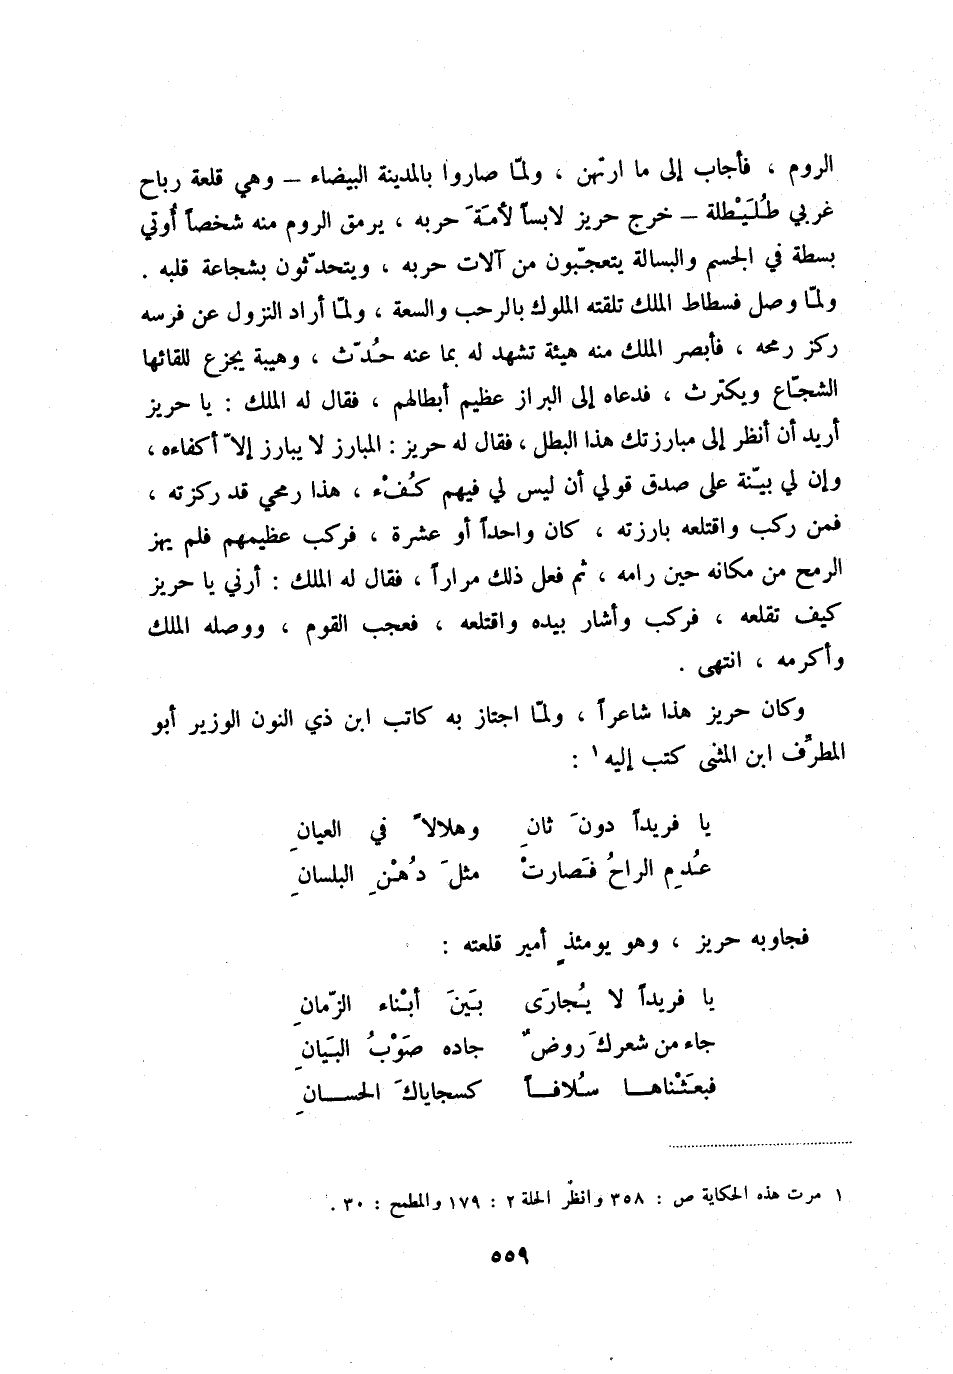 الروم ، فأجاب إلى ما ارتهن ، ولمّا صاروا بالمدينة البيضاء – وهي قلعة رباح
غربي طُلَيْطلة – خرج حريز لابساً لأمَةَ حربه ، يرمق الروم منه شخصاً أُوتي
بسطة في الجسم والبسالة يتعجّبون من آلات حربه ، ويتحدّثون بشجاعة قلبه .
ولمّا وصل فسطاط الملك تلقته الملوك بالرحب والسعة ، ولمّا أراد النزول عن فرسه
ركز رمحه ، فأبصر الملك منه هيئة تشهد له بما عنه حُدّث ، وهيبة يجزع للقائها
الشجّاع ويكترث ، فدعاه إلى البراز عظيم أبطالهم ، فقال له الملك : يا حريز
أريد أن أنظر إلى مبارزتك هذا البطل ، فقال له حريز : المبارز لا يبارز إلاّ أكفاءه ،
وإن لي بيّنة على صدق قولي أن ليس لي فيهم كُفْء ، هذا رمحي قد ركزته ،
فمن ركب واقتلعه بارزته ، كان واحداً أو عشرة ، فركب عظيمهم فلم يهز
الرمح من مكانه حين رامه ، ثم فعل ذلك مراراً ، فقال له الملك : أرني يا حريز
كيف تقلعه ، فركب وأشار بيده واقتلعه ، فعجب القوم ، ووصله الملك
وأكرمه ، انتهى .
وكان حريز هذا شاعراً ، ولمّا اجتاز به كاتب ابن ذي النون الوزير أبو
المطرِّف ابن المثنى كتب إليه ١ :
يا فريداً دونَ ثانِ وهلالاً في العيانِ
عُدِم الراحُ فَصارتْ مثلَ دُهْنِ البلسانِ
فجاوبه حريز ، وهو يومئذٍ أمير قلعته :
يا فريداً لا يُجارَى بَينَ أبْناء الزّمانِ
جاء من شعركَ روضٌ جاده صَوْبُ البَيانِ
فبعَثْناهـا سُلافـاً كسجاياكَ الحسـانِ
١ مرت هذه الحكاية ص : ٣٥٨ وانظر الحلة ٢ : ١٧٩ والمطمح : ٣٠ .
٥٥٩